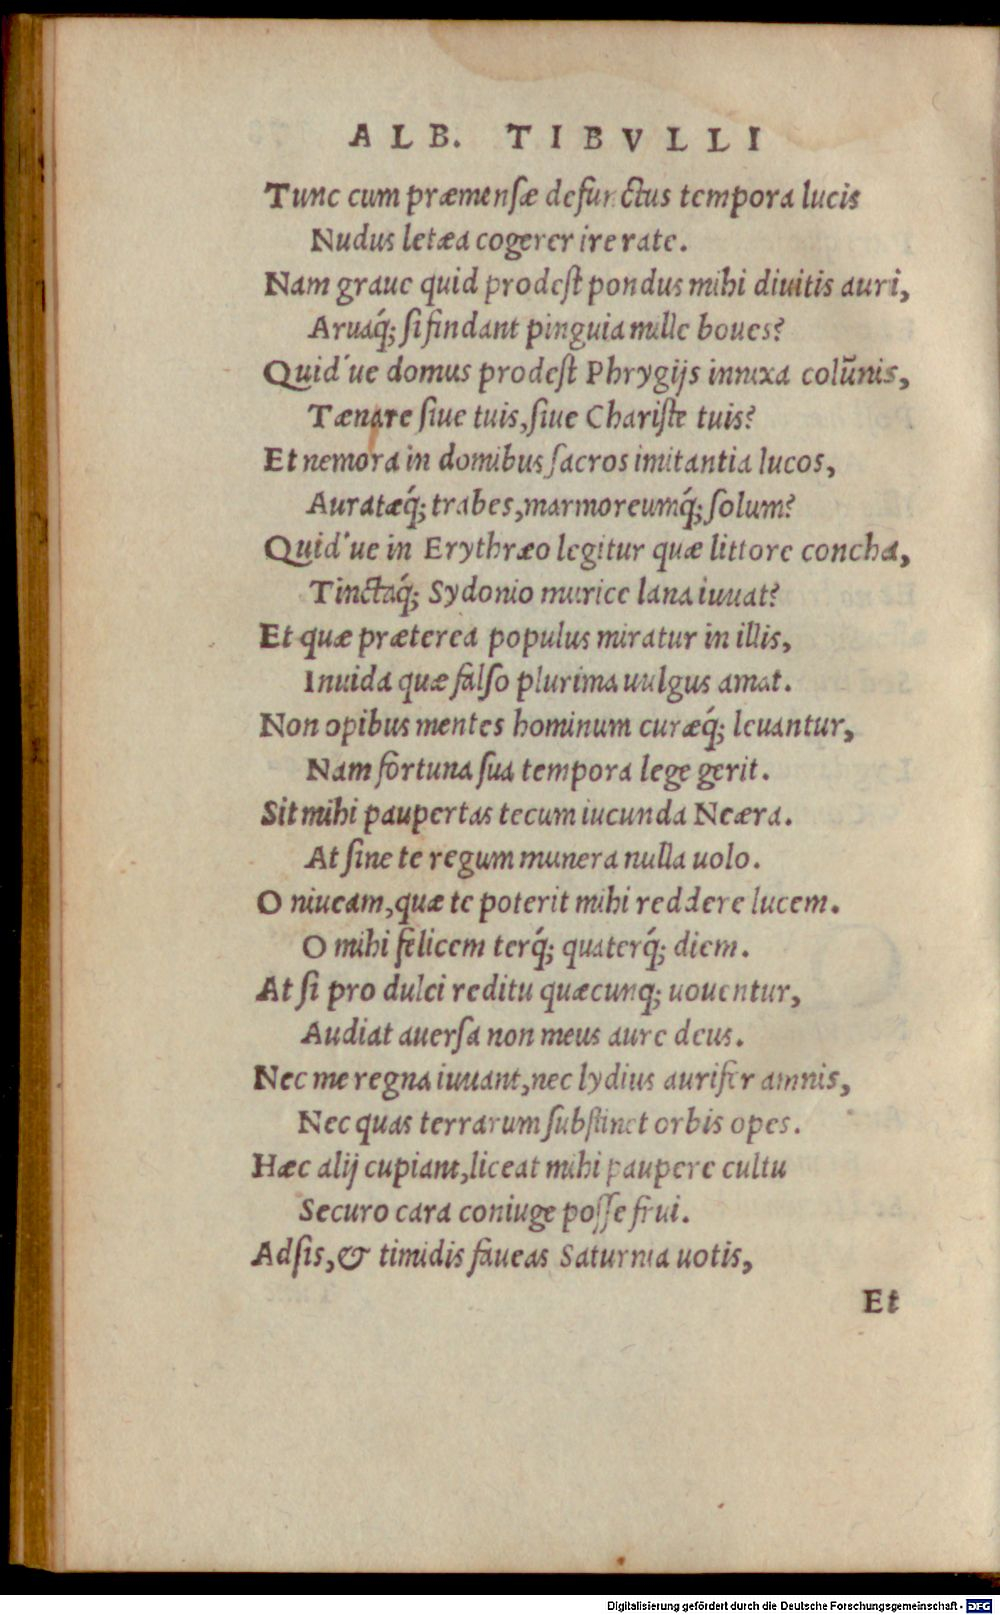 ALB. TIBVLLI
Tunc cum præmensæ defunctus tempora lucis
Nudus letæa cogerer ire rate.
Nam graue quid prodest pondus mihi diuitis auri,
Aruaq́; si findant pinguia mille boues?
Quid´ue domus prodest Phrygijs innixa colūnis,
Tænare siue tuis, siue Chariste tuis?
Et nemora in domibus sacros imitantia lucos,
Auratæq́; trabes, marmoreumq́; solum?
Quid´ue in Erythræo legitur quæ littore concha,
Tinctaq́; Sydonio murice lana iuuat?
Et quæ præterea populus miratur in illis,
Inuida quæ falso plurima uulgus amat.
Non opibus mentes hominum curæq́; leuantur,
Nam fortuna sua tempora lege gerit.
Sit mihi paupertas tecum iucunda Neæra.
At sine te regum munera nulla uolo.
O niueam, quæ te poterit mihi reddere lucem.
O mihi felicem terq́; quaterq́; diem.
At si pro dulci reditu quæcunq; uouentur,
Audiat auersa non meus aure deus.
Nec me regna iuuant, nec lydius aurifer amnis,
Nec quas terrarum substinet orbis opes.
Hæc alij cupiant, liceat mihi paupere cultu
Securo cara coniuge posse frui.
Adsis, & timidis faueas Saturnia uotis,
Et
Digitalisierung gefördert durch die Deutsche Forschungsgemeinschaft - DFG